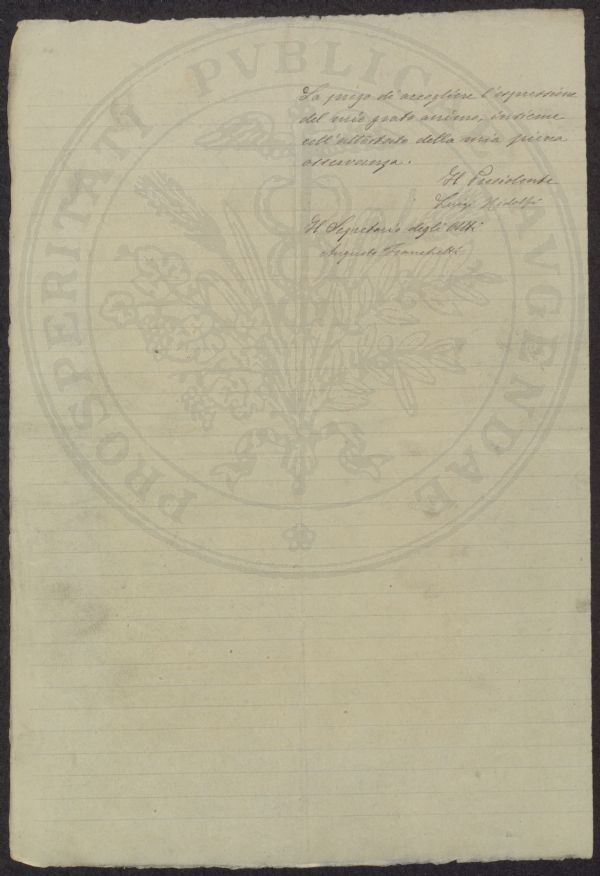 La prego di accogliere l'espressione
del mio grato animo, insieme
coll'attestato della mia piena
osservanza.
Il Presidente
Luigi Ridolfi
Il Segretario degli Atti
Augusto Franchetti
PROSPERITATI PVBLICAE AVGENDAE